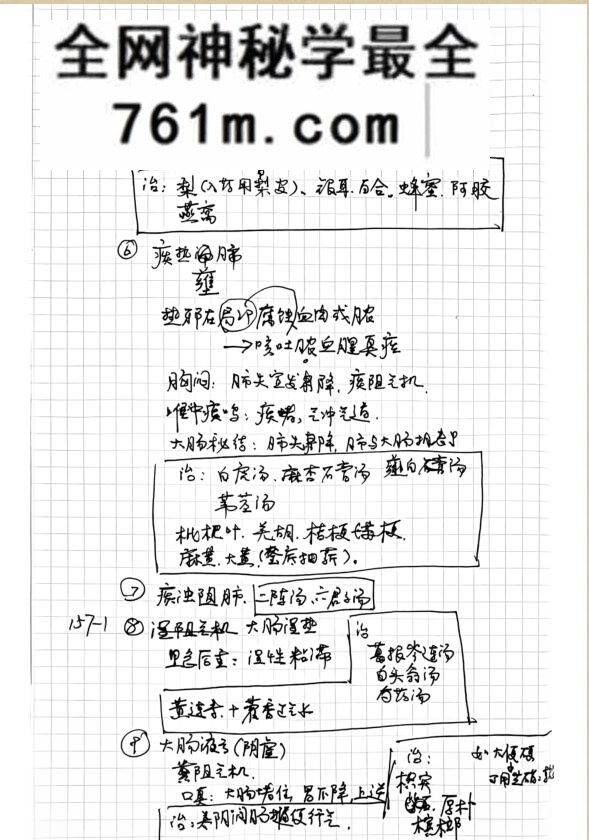 全网神秘学最全
761m.com
治：梨(入药用梨皮)、银耳.百合。蜂蜜.阿胶
燕窝
⑥ 痰热闭肺
壅
热邪在局部腐蚀血肉成脓
→咳吐脓血腥臭痰
胸闷：肺失宣发肃降.痰阻气机.
喉中痰鸣：痰堵,气冲气道.
大肠秘结：肺失肃降,肺与大肠相表里
治：白虎汤.麻杏石膏汤
苇茎汤
枇杷叶.
麻黄.大黄.(釜底抽薪)。
⑦ 痰浊阻肺. 二陈汤.六君子汤
157-1 ⑧ 湿阻气机 大肠湿热
里急后重：湿性粘滞
治
葛根芩连汤
白头翁汤
芍药汤
黄连素+藿香正气水
⑨ 大肠液亏(阴虚)
粪阻气机.
口臭：大肠堵住,胃不降,上逆
治：养阴润肠通便行气.
治：
枳实
厚朴
槟榔
如大便硬
可用芒硝